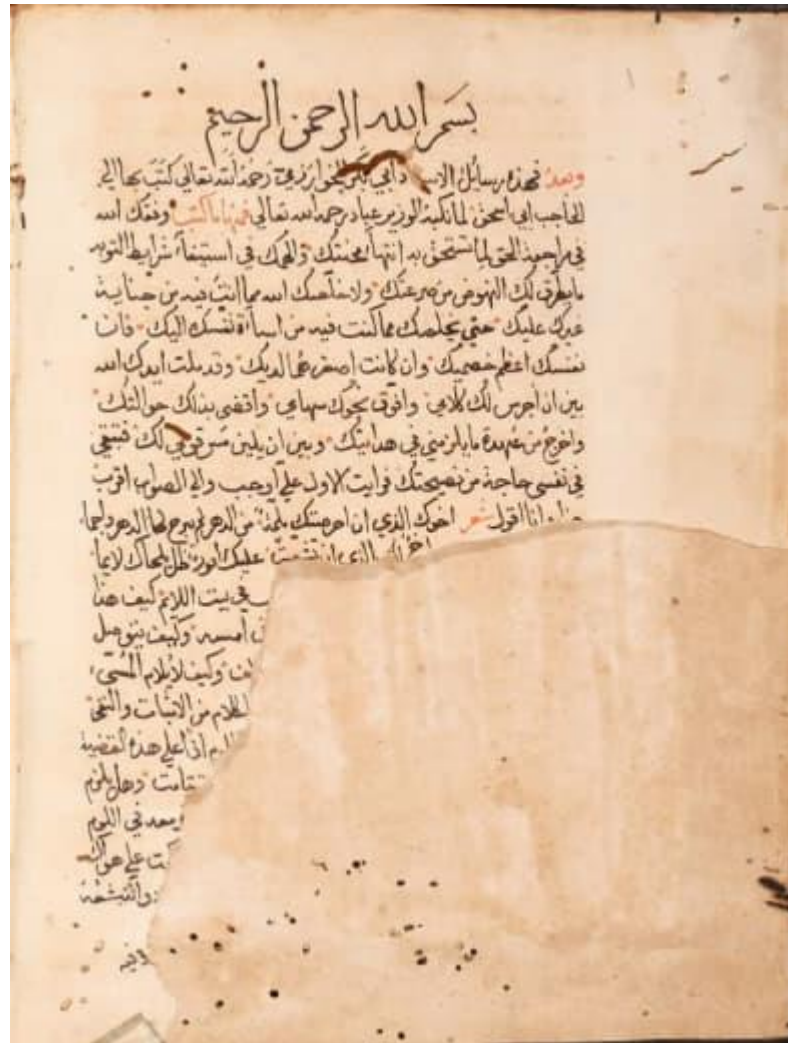 بسم الله الرحمن الرحيم
وبعد فهذه رسائل الاستاد ابي بكر الخوارزمي رحمه الله تعالى كتب بها الى
الحاجب ابي اسحق لما نكبه الوزير عباد رحمه الله تعالى فمنها ما كتب وفقك الله
في مراجعة الحق لما تستحق به انتهاء محنتك والهمك في استيفاء شرايط التوبه
ما يطرق لك النهوض من صرعتك ولا خلصك الله مما انت فيه من جناية
غيرك عليك حتى يخلصك مما كنت فيه من اساءة نفسك اليك فان
نفسك اعظم خصميك وان كانت اصغرهما لديك وقد ملت ايدك الله
بين ان اجرس لك كلامي وافوق نحوك سهامي واقضى بذلك حوالتك
واخرج من عهدة ما يلزمني في هدايتك وبين ان يلين مس قولي لك فتبقى
في نفسي حاجة من نصيحتك فرايت الاول علي اوجب والى الصواب اقرب
انا اقول شعر اخوك الذي ان اجرضتك ملمة من الدهر لم يبرح لها الدهر واجما
الذي ان تشعبت عليك امور ظل يلحاك لايما
في بيت اللائم كيف هذا
امسه وكيف يتوصل
وكيف لا يلام المسيء
الكلام من الاثبات والنفي
اذا على هذه القضية
وهل يلزم
في اللوم
على هواك